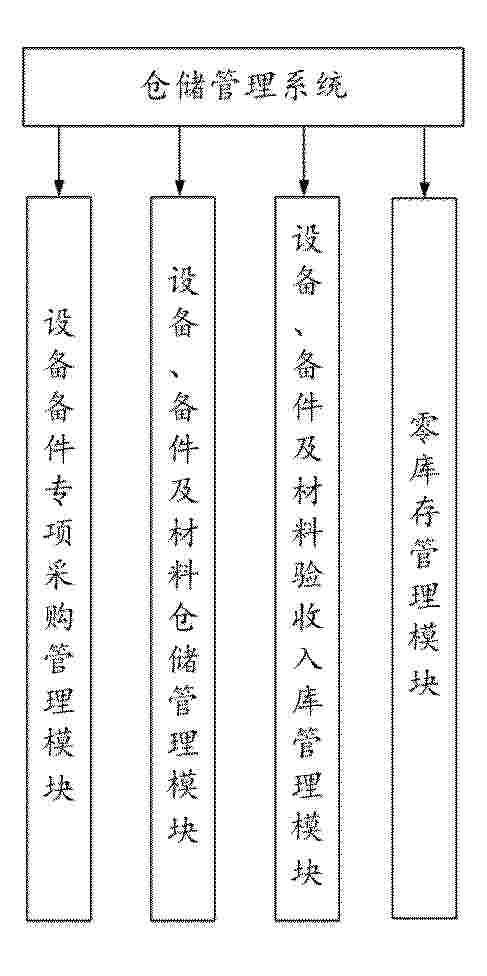 仓储管理系统
设备备件专项采购管理模块
设备、备件及材料仓储管理模块
设备、备件及材料验收入库管理模块
零库存管理模块